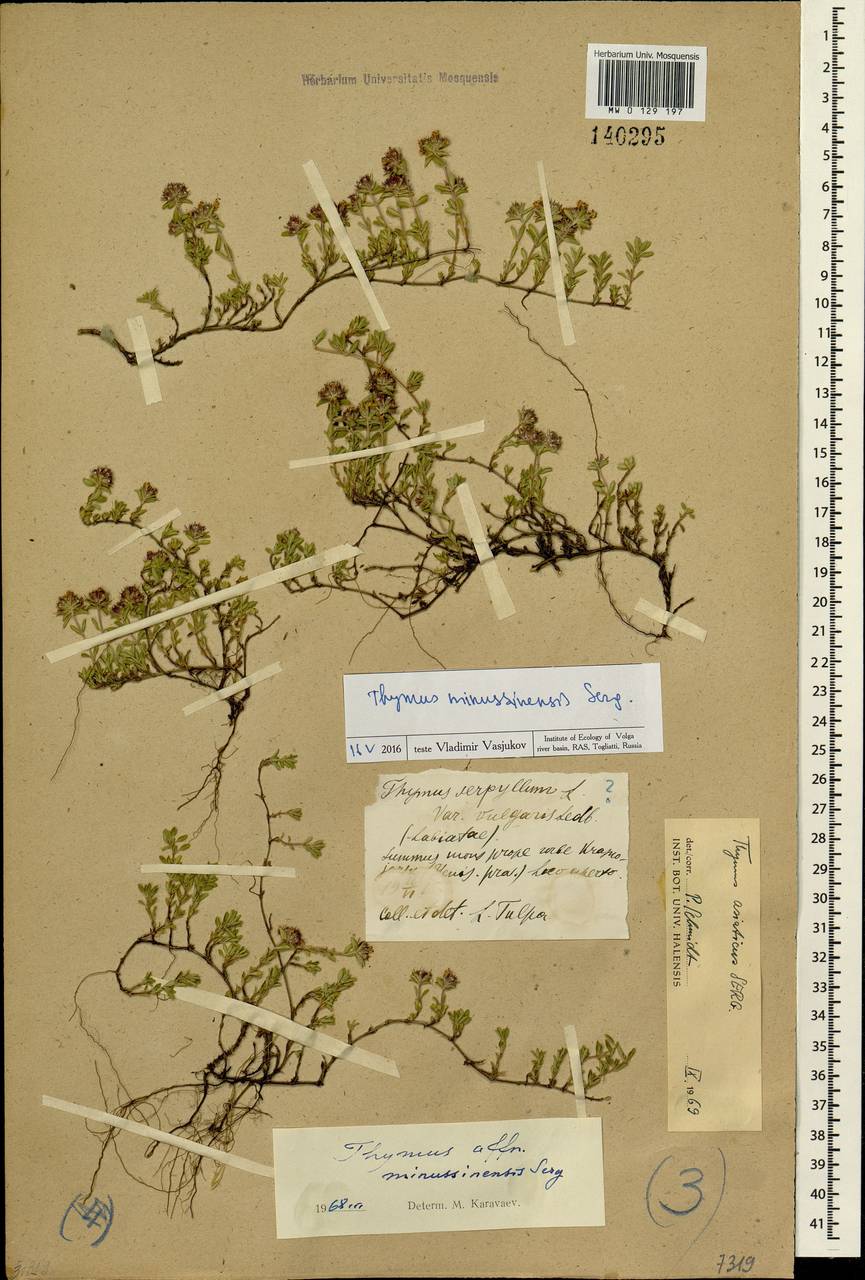 Herbarium Universitatis Mosquensis
Herbarium Univ. Mosquensis
MW 0 129 197
140295
Thymus minussinensis Serg.
16 V 2016
teste Vladimir Vasjukov
Institute of Ecology of Volga
river basin, RAS, Togliatti, Russia
Thymus serpyllum L. ?
Var. vulgaris Ledb.
(Labiatae).
Summus mons prope urbe Krasno-
loco aperto.
VI
Coll. et det. L. Tulpa
Thymus asiaticus SERG.
det./corr. P. Schmidt
INST. BOT. UNIV. HALENSIS
IX 1969
Thymus affn.
minussinensis Serg
1968 III
Determ. M. Karavaev.
3
7319
1
2
3
4
5
6
7
8
9
10
11
12
13
14
15
16
17
18
19
20
21
22
23
24
25
26
27
28
29
30
31
32
33
34
35
36
37
38
39
40
41